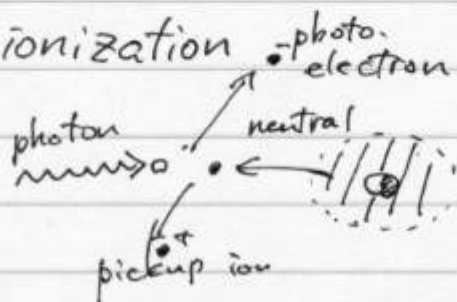 ionization
- photo.
electron
photon
neutral
+
pickup ion